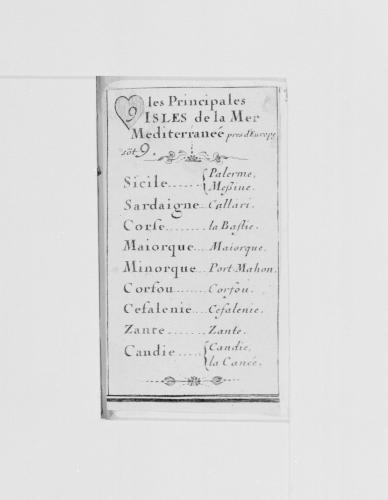 9 les Principales
ISLES de la Mer
Mediterraneé pres d'Europe
sõt 9.
Sicile...... { Palerme,
Meſſine.
Sardaigne.. Callari.
Corſe........ la Baſtie.
Maiorque... Maiorque.
Minorque... Port Mahon.
Corfou...... Corfou.
Cefalenie.... Cefalenie.
Zante....... Zante.
Candie..... { Candie,
la Caneé.